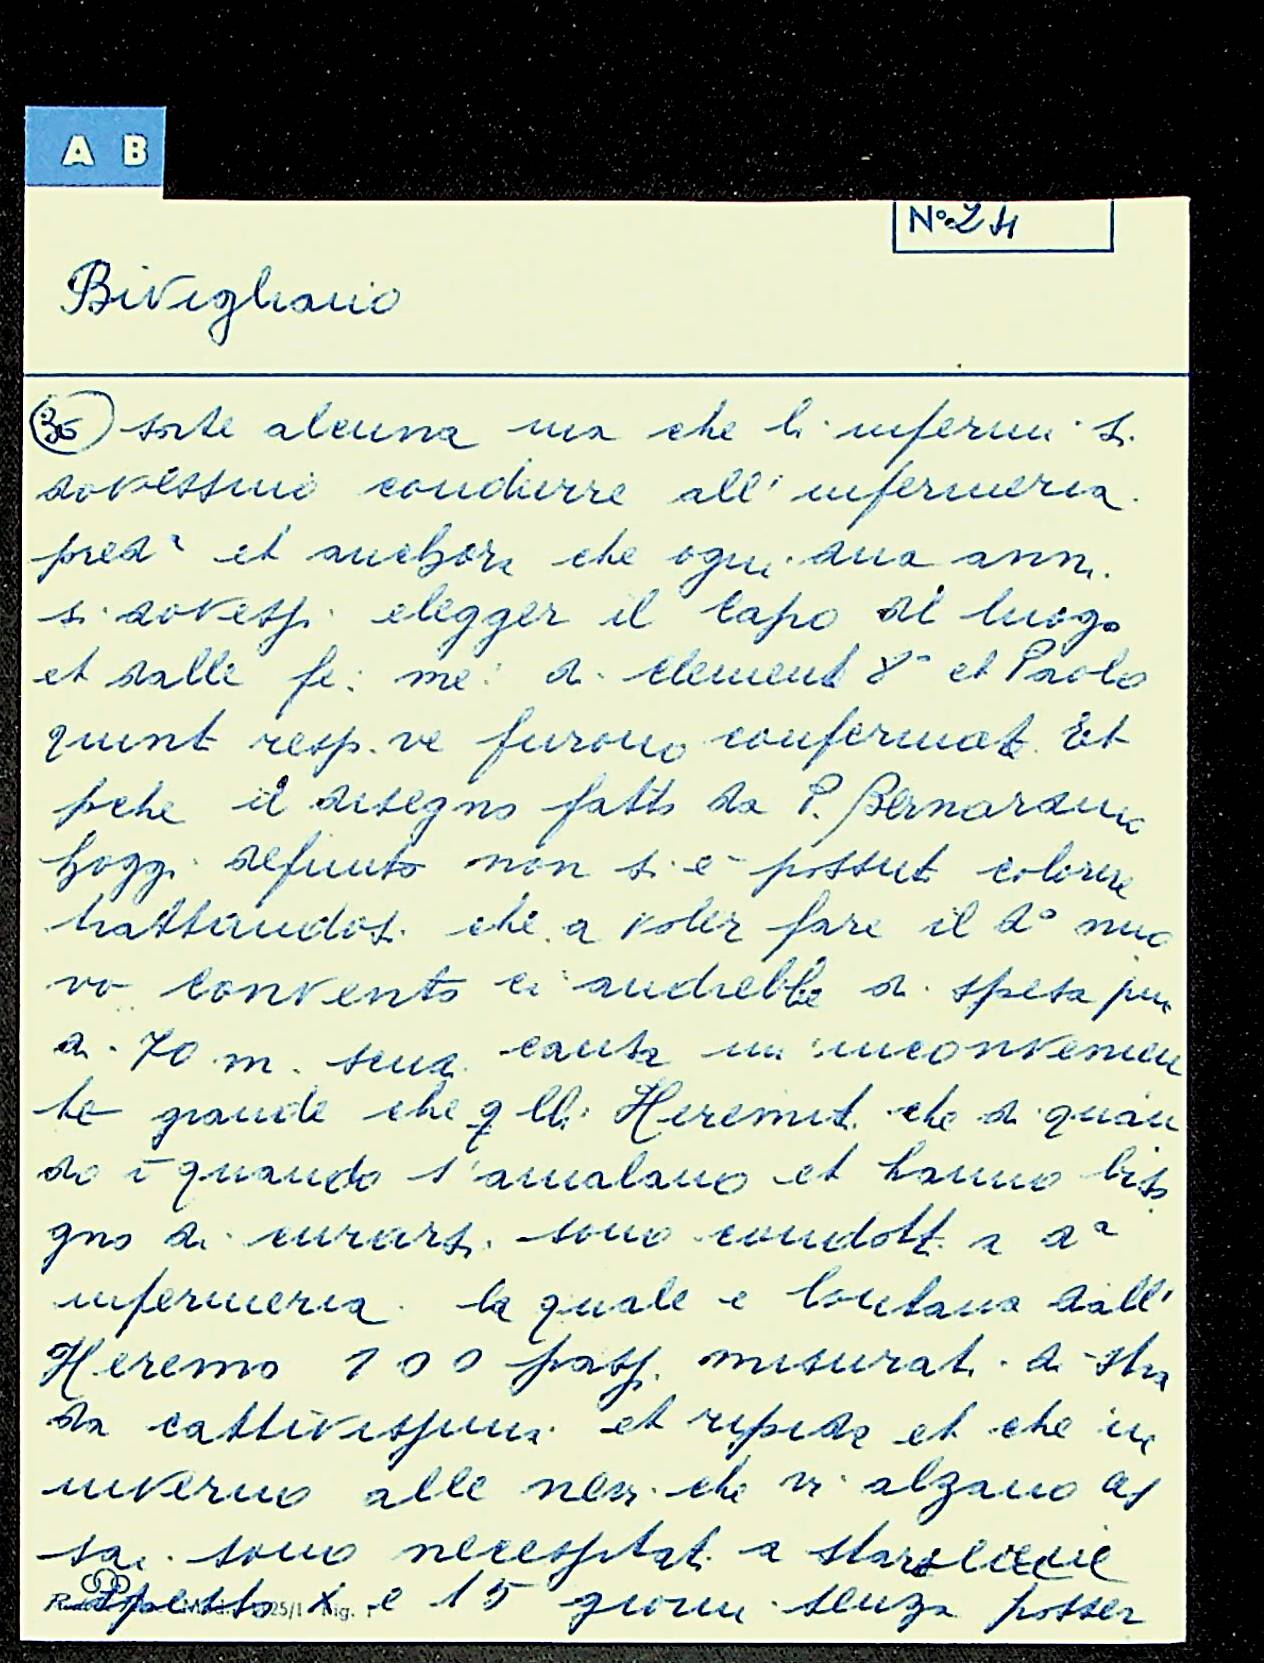 A B
N° 24
Bivigliano
36 sorte alcuna ma che li infermi si
dovessino condurre all' infermeria
pred^a et anchora che ogni dua anni
si dovessi elegger il capo del luogo
et dalle fe: me: di Clement 8° et Paolo
quint resp.ve furono confermat. Et
pche il disegno fatto da P. Bernardino
defunto non si e possut colorire
trattandosi che a voler fare il d° nuo
vo convento ci andrebbe di spesa piu
di 70 m. senza causa un inconvenien
te grande che qlli Heremit. che di quan
do i quando s'amalano et hanno biso
gno di curarsi sono condott. a d^a
infermeria la quale e lontana dall'
Heremo 100 passi misurati di stra
da cattivissima et ripida et che in
inverno alle nevi che vi alzano as
sai sono necessitat. a starsene
spesso x e 15 giorni senza posser